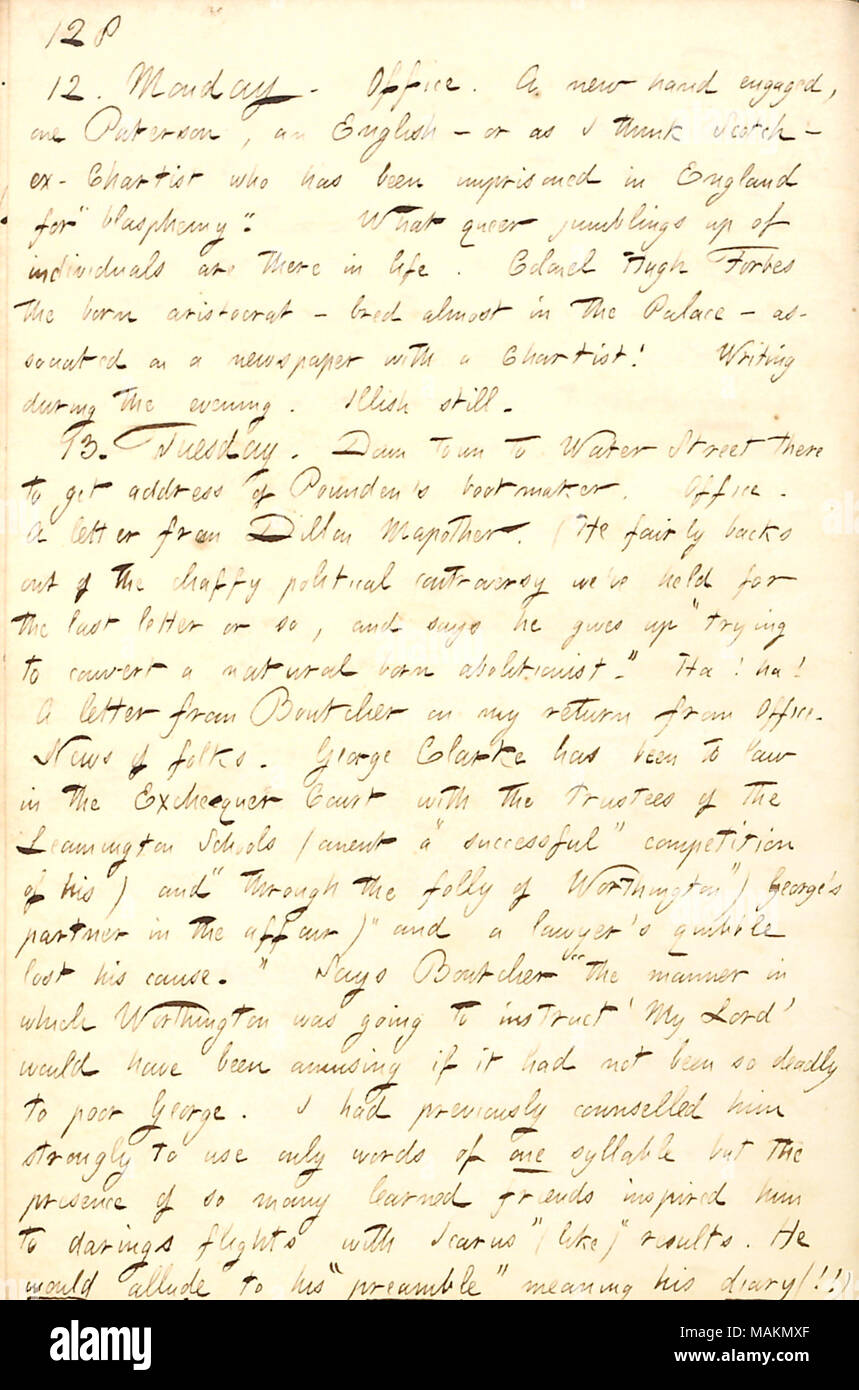 128
12. Monday. Office. A new hand engaged,
one Paterson, an English - or as I think Scotch -
ex-Chartist who has been imprisoned in England
for "blasphemy". What queer jumblings up of
individuals are there in life. Colonel Hugh Forbes
the born aristocrat - bred almost in the Palace - as-
sociated on a newspaper with a Chartist! Writing
during the evening. Illish still.
13. Tuesday. Down town to Water Street there
to get address of Pounden's bootmaker. Office.
A letter from Dillon Mapother. (He fairly backs
out of the chaffy political controversy we've held for
the last letter or so, and says he gives up "trying
to convert a natural born abolitionist." Ha! ha!
A letter from Boutcher on my return from Office.
News of folks. George Clarke has been to law
in the Exchequer Court with the Trustees of the
Leamington Schools (anent a "successful" competition
of his) and "through the folly of Worthington") George's
partner in the affair)" and a lawyer's quibble
lost his cause." Says Boutcher "the manner in
which Worthington was going to instruct 'My Lord'
would have been amusing if it had not been so deadly
to poor George. I had previously counselled him
strongly to use only words of one syllable but the
presence of so many learned friends inspired him
to darings flights with Icarus "(like)" results. He
would allude to his "preamble" meaning his diary(!!)
alamy
Image ID: MAKMXF
www.alamy.com